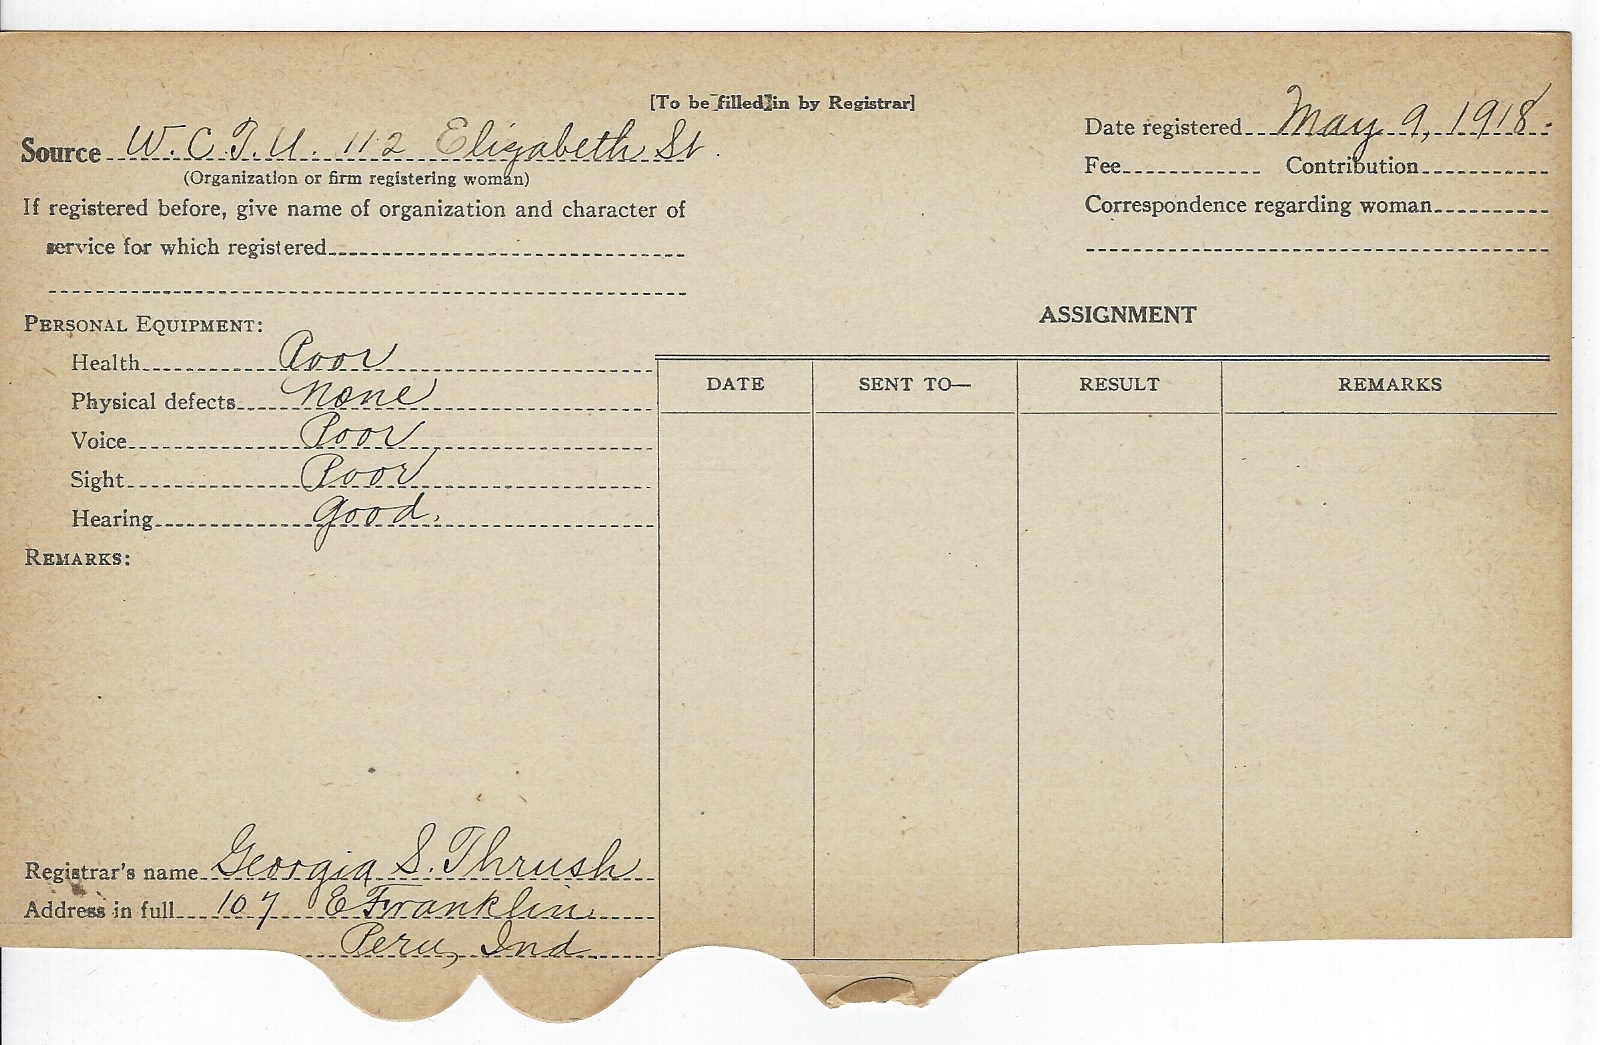 [To be filled in by Registrar]
Source W. C. T. U. 112 Elizabeth St.
(Organization or firm registering woman)
If registered before, give name of organization and character of
service for which registered
Date registered May 9, 1918.
Fee Contribution
Correspondence regarding woman
PERSONAL EQUIPMENT:
Health Poor
Physical defects None
Voice Poor
Sight Poor
Hearing good.
REMARKS:
ASSIGNMENT
DATE SENT TO— RESULT REMARKS
Registrar's name Georgia S. Thrush
Address in full 107 E Franklin
Peru, Ind.